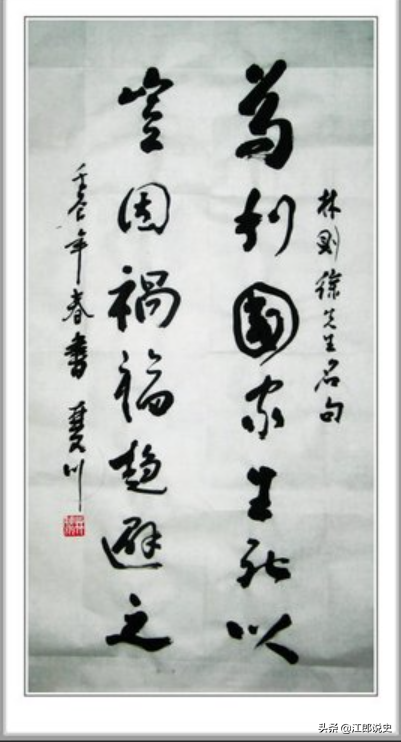 林则徐先生名句
苟利國家生死以
豈因禍福趨避之
壬辰年春書 川
头条 @江郎说史